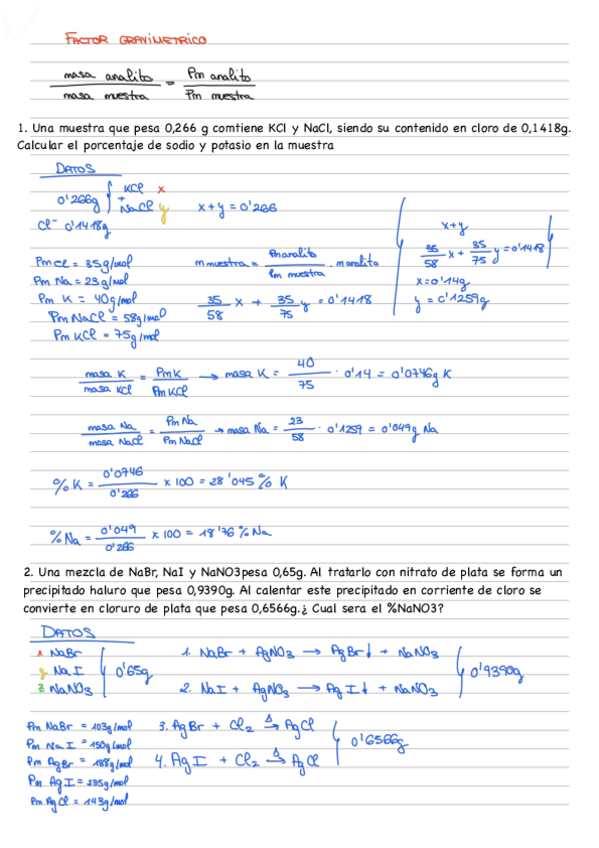 FACTOR GRAVIMETRICO
masa analito / masa muestra = Pm analito / Pm muestra
1. Una muestra que pesa 0,266 g comtiene KCl y NaCl, siendo su contenido en cloro de 0,1418g.
Calcular el porcentaje de sodio y potasio en la muestra
DATOS
0'266g { KCl x
+
NaCl y
x+y = 0'266
Cl⁻ 0'1418g
Pm Cl = 35g/mol
Pm Na = 23g/mol
Pm K = 40g/mol
Pm NaCl = 58g/mol
Pm KCl = 75g/mol
m muestra = Pm analito / Pm muestra · m analito
35/58 x + 35/75 y = 0'1418
x+y
35/58 x + 35/75 y = 0'1418
x = 0'14g
y = 0'1259g
masa K / masa KCl = Pm K / Pm KCl → masa K = 40/75 · 0'14 = 0'0746g K
masa Na / masa NaCl = Pm Na / Pm NaCl → masa Na = 23/58 · 0'1259 = 0'049g Na
% K = 0'0746 / 0'266 x 100 = 28'045% K
% Na = 0'049 / 0'266 x 100 = 18'76% Na
2. Una mezcla de NaBr, NaI y NaNO3 pesa 0,65g. Al tratarlo con nitrato de plata se forma un
precipitado haluro que pesa 0,9390g. Al calentar este precipitado en corriente de cloro se
convierte en cloruro de plata que pesa 0,6566g.¿ Cual sera el %NaNO3?
DATOS
x NaBr
y NaI
z NaNO3
0'65g
1. NaBr + AgNO3 → AgBr↓ + NaNO3
2. NaI + AgNO3 → AgI↓ + NaNO3
0'9390g
Pm NaBr = 103g/mol
Pm NaI = 150g/mol
Pm AgBr = 188g/mol
Pm AgI = 235g/mol
Pm AgCl = 143g/mol
3. AgBr + Cl2 →Δ AgCl
4. AgI + Cl2 →Δ AgCl
0'6566g